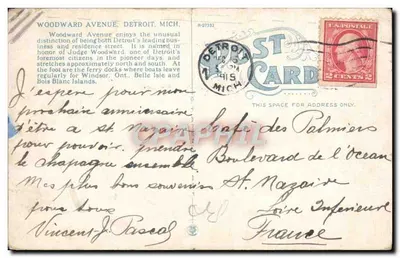 WOODWARD AVENUE, DETROIT, MICH.
Woodward Avenue enjoys the unusual
distinction of being both Detroit's leading busi-
ness and residence street. It is named in
honor of Judge Woodward, one of Detroit's
foremost citizens in the pioneer days, and
stretches approximately north and south. At
the foot are the ferry docks where boats leave
regularly for Windsor, Ont., Belle Isle and
Bois Blanc Islands.
DETROIT
MICH
1915
POST
CARD
THIS SPACE FOR ADDRESS ONLY.
U.S. POSTAGE
2 CENTS 2
J'espere pour mon
prochaine anniversaire
d'être a St Nazaire
pour pouvoir prendre
le chapagne ensemble
Mes plus bons souvenirs
pour tous
Vincent J. Pascal
Cafe des Palmiers
Boulevard de l'Ocean
St. Nazaire
Loire Inferieure
France